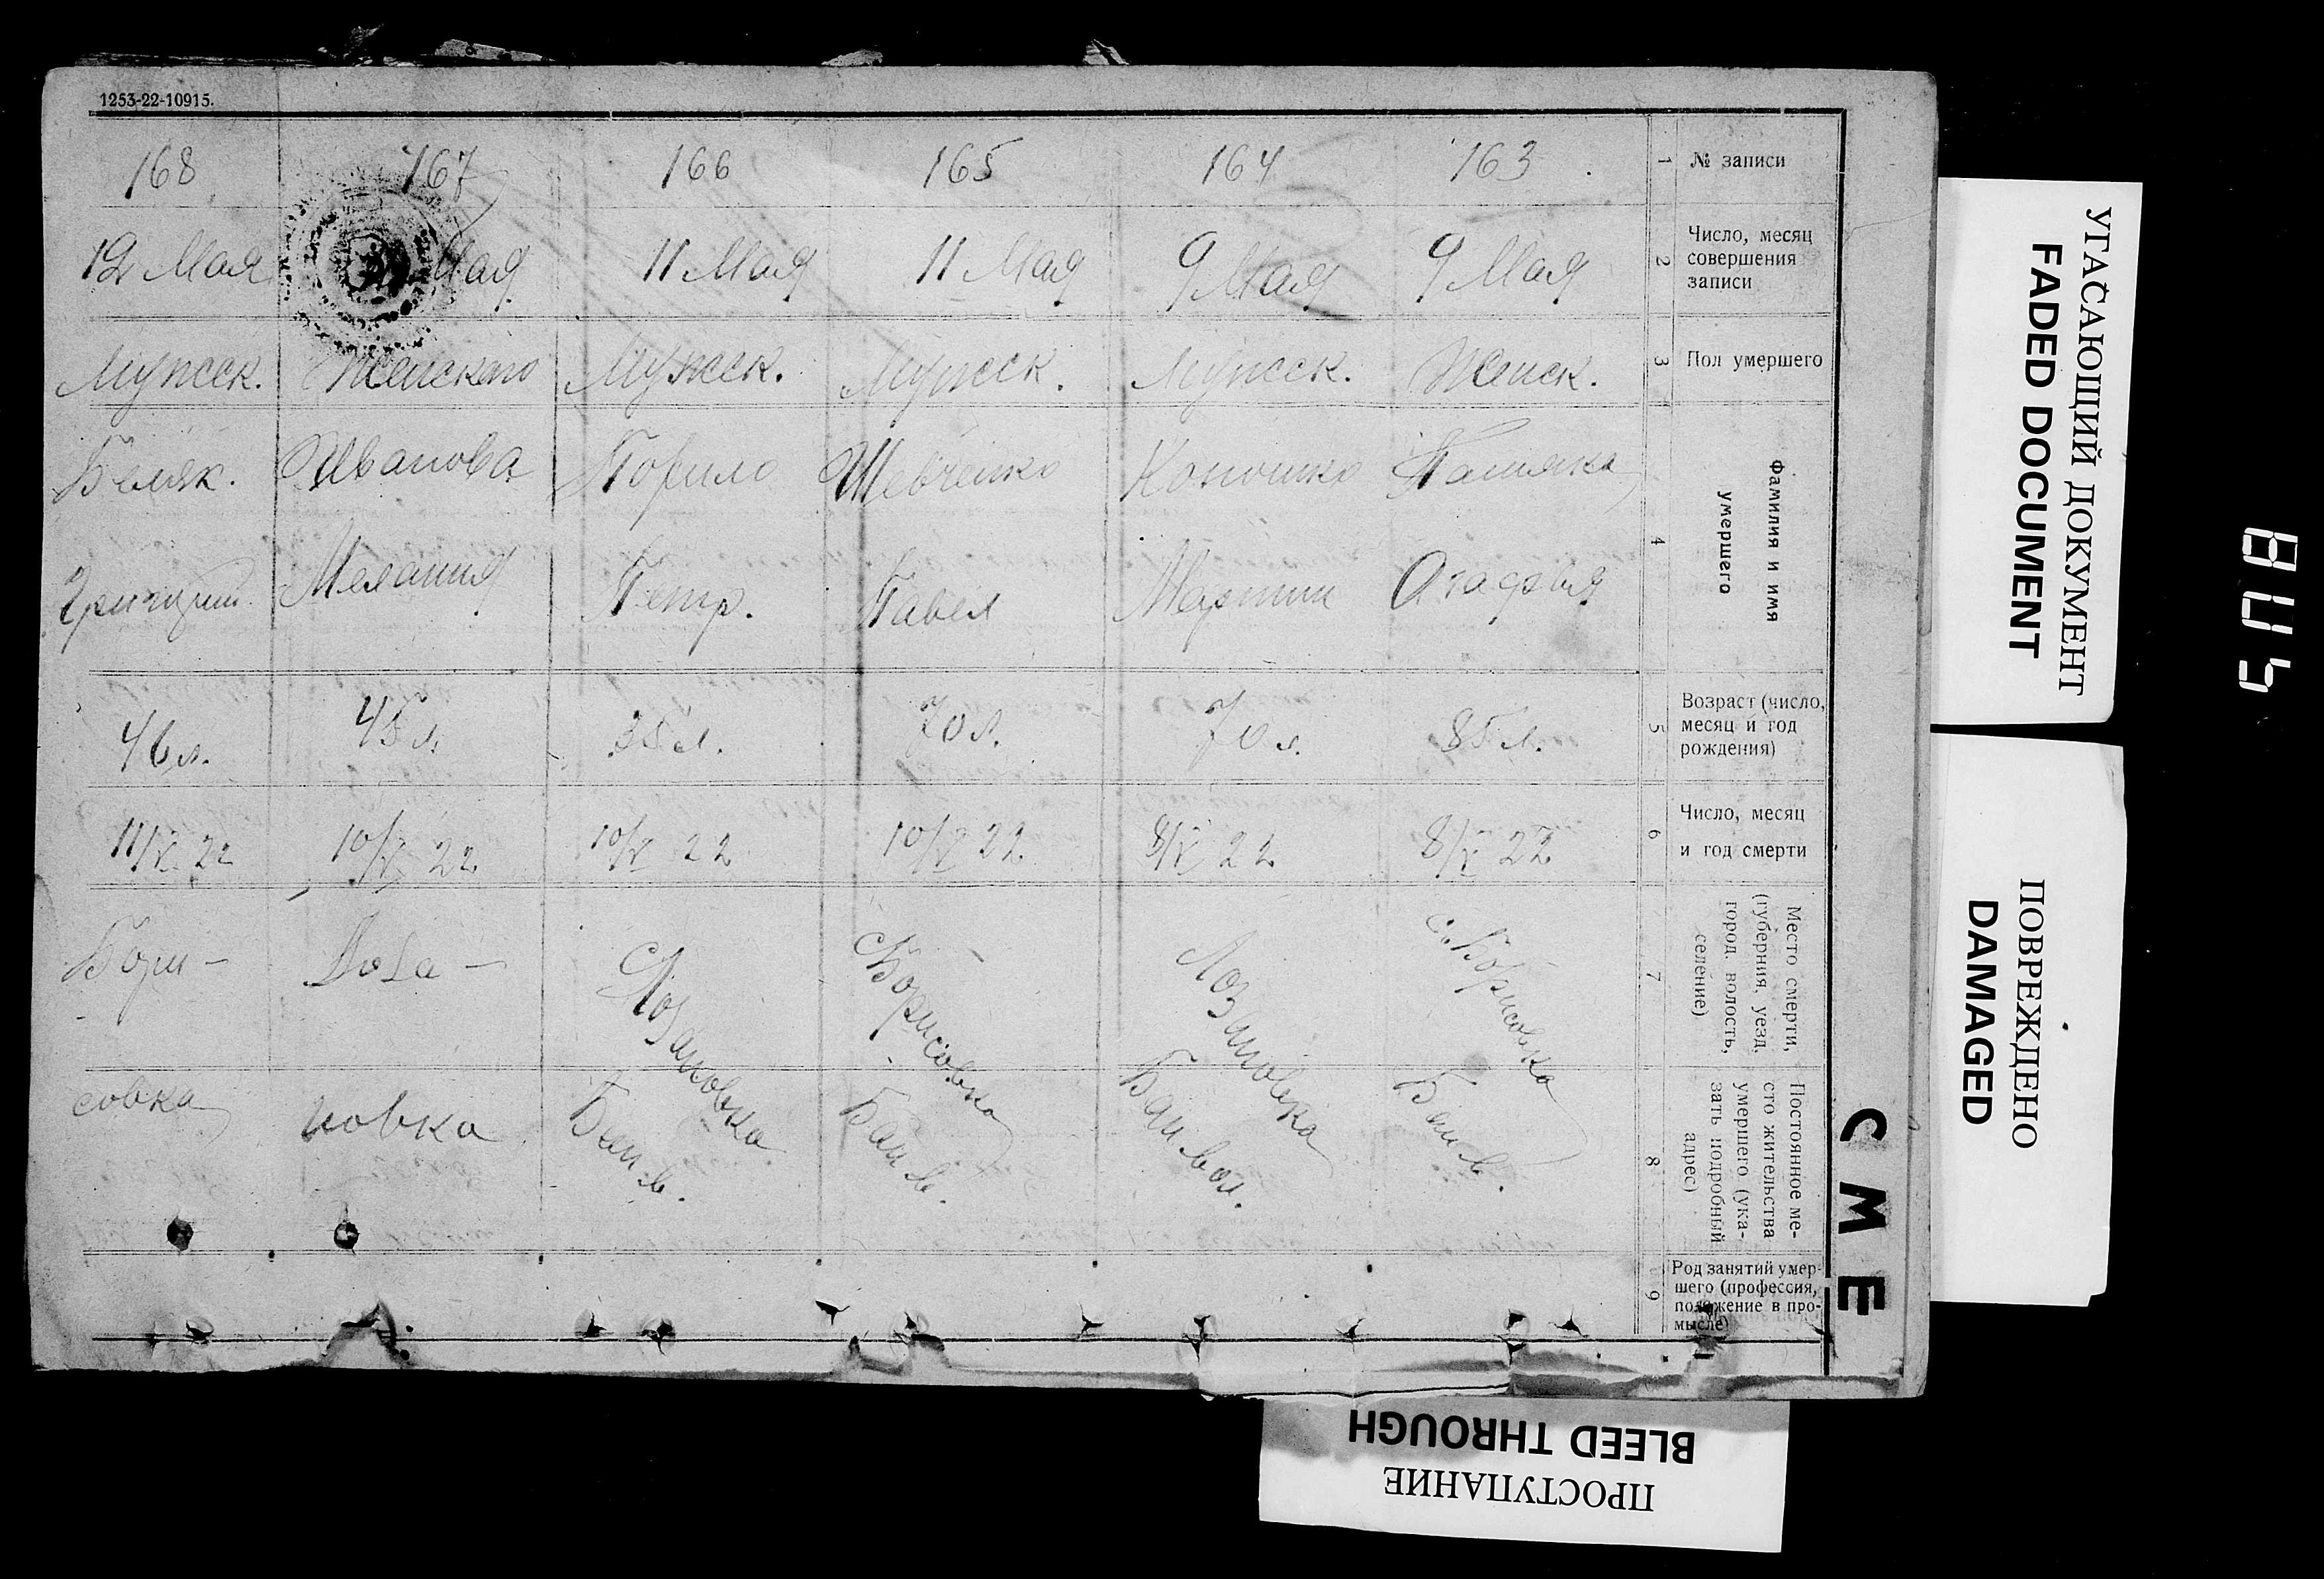 1253-22-10915.
168 167 166 165 164 163 1 № записи
12 Мая Мая 11 Мая 11 Мая 9 Мая 9 Мая 2 Число, месяц
совершения
записи
Мужск. Женского Мужск. Мужск. Мужск. Женск. 3 Пол умершего
Беляк. Иванова Шевченко
4 Фамилия и имя
умершего
Григорий Мелания Петр. Павел Мартин Агафья
46 л. 45 л. 35 л. 70 л. 70 л. 85 л. 5 Возраст (число,
месяц и год
рождения)
11/V 22 10/V 22 10/V 22 10/V 22 8/V 22 8/V 22 6 Число, месяц
и год смерти
7 Место смерти,
(губерния, уезд,
город, волость,
селение)
Бори- Лоза- Лозановка с Борисовка Лозановка с. Борисовка
совка новка Бан в. Бан в. Бан вол. Бан в.
8 Постоянное ме-
сто жительства
умершего (ука-
зать подробный
адрес)
9 Род занятий умер-
шего (профессия,
положение в про-
мысле)
СМЕ
УГАСАЮЩИЙ ДОКУМЕНТ
FADED DOCUMENT
ПОВРЕЖДЕНО
DAMAGED
ПРОСТУПАНИЕ
BLEED THROUGH